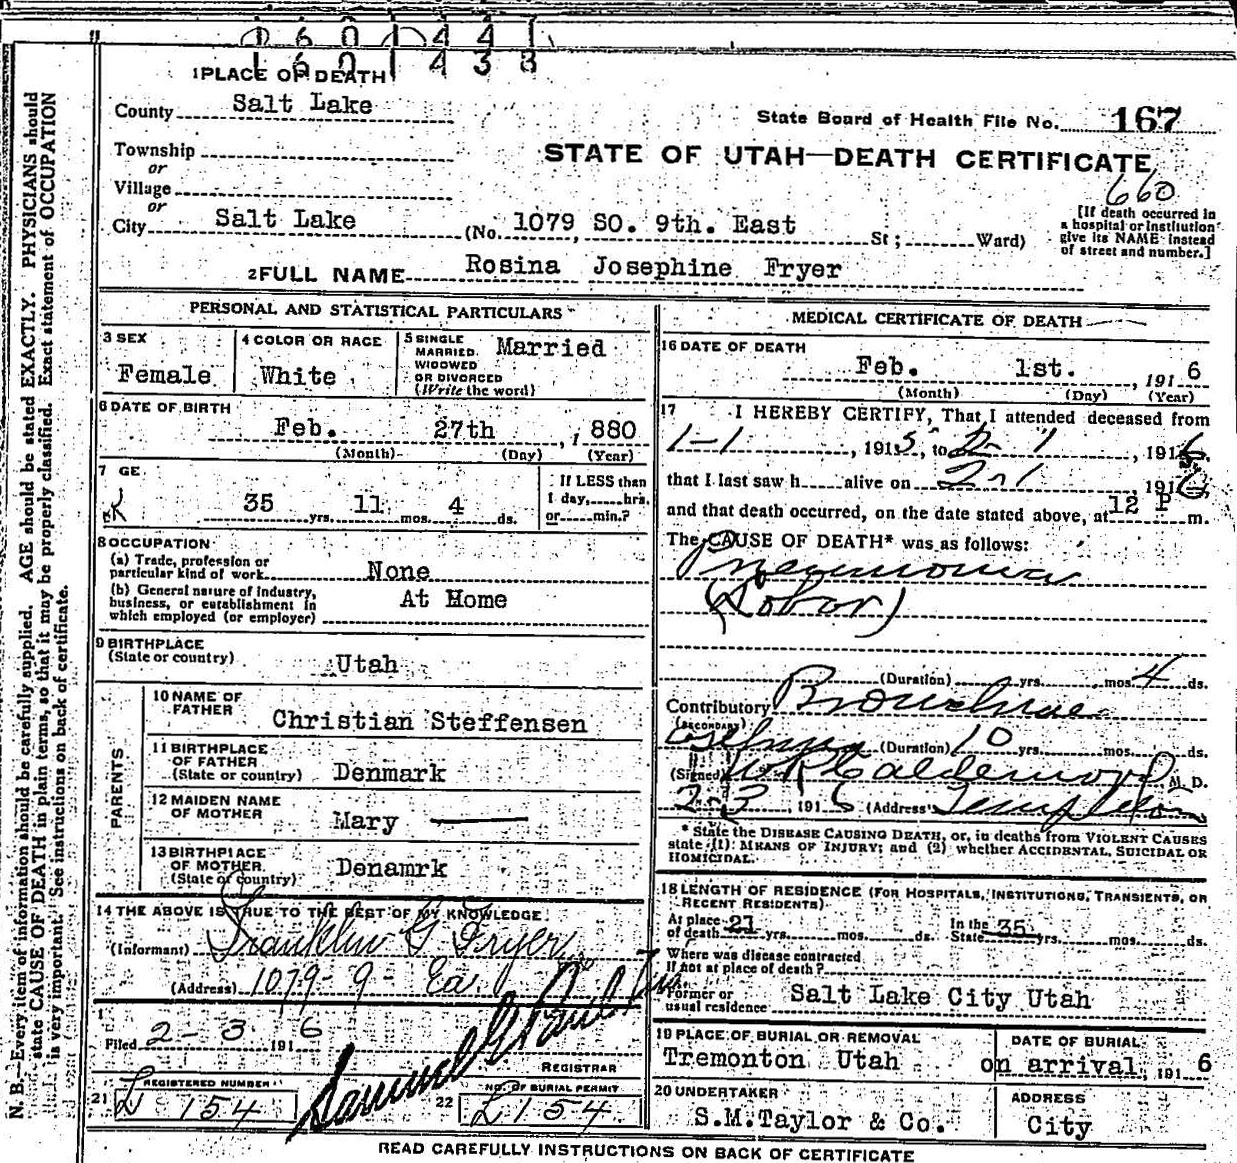 1 6 0 1 4 4 1
1 6 0 1 4 3 8
1 PLACE OF DEATH
County Salt Lake
State Board of Health File No. 167
Township
or
Village
or
STATE OF UTAH—DEATH CERTIFICATE
660
City Salt Lake (No. 1079 SO. 9th. East St; Ward)
[If death occurred in
a hospital or institution
give its NAME instead
of street and number.]
2 FULL NAME Rosina Josephine Fryer
PERSONAL AND STATISTICAL PARTICULARS
3 SEX
Female
4 COLOR OR RACE
White
5 SINGLE
MARRIED
WIDOWED
OR DIVORCED
(Write the word)
Married
6 DATE OF BIRTH
Feb. 27th , 1 880
(Month) (Day) (Year)
7 GE
35 yrs. 11 mos. 4 ds.
If LESS than
1 day, hrs.
or min.?
8 OCCUPATION
(a) Trade, profession or
particular kind of work None
(b) General nature of industry,
business, or establishment in
which employed (or employer) At Home
9 BIRTHPLACE
(State or country) Utah
PARENTS
10 NAME OF
FATHER Christian Steffensen
11 BIRTHPLACE
OF FATHER
(State or country) Denmark
12 MAIDEN NAME
OF MOTHER Mary ——
13 BIRTHPLACE
OF MOTHER
(State or country) Denamrk
14 THE ABOVE IS TRUE TO THE BEST OF MY KNOWLEDGE
(Informant) Franklin G Fryer
(Address) 1079-9-Ea.
Filed 2-3 191 6
REGISTRAR
21 REGISTERED NUMBER
L 154
22 NO. OF BURIAL PERMIT
L 154
MEDICAL CERTIFICATE OF DEATH
16 DATE OF DEATH
Feb. 1st. , 191 6
(Month) (Day) (Year)
17 I HEREBY CERTIFY, That I attended deceased from
1-1 , 1915, to 2-1 , 1916.
that I last saw h alive on 2-1 1916,
and that death occurred, on the date stated above, at 12 P m.
The CAUSE OF DEATH* was as follows:
Pneumonia
(Lobar)
(Duration) yrs. mos. 4 ds.
Contributory Bronchial
(SECONDARY)
Asthma (Duration) 10 yrs. mos. ds.
(Signed) W R Calderwood M. D.
2-3 1916 (Address)
* State the DISEASE CAUSING DEATH, or, in deaths from VIOLENT CAUSES
state (1) MEANS OF INJURY; and (2) whether ACCIDENTAL, SUICIDAL OR
HOMICIDAL.
18 LENGTH OF RESIDENCE (FOR HOSPITALS, INSTITUTIONS, TRANSIENTS, OR
RECENT RESIDENTS)
At place
of death 21 yrs. mos. ds. In the
State 35 yrs. mos. ds.
Where was disease contracted
if not at place of death?
Former or
usual residence Salt Lake City Utah
19 PLACE OF BURIAL OR REMOVAL
Tremonton Utah
DATE OF BURIAL
on arrival, 191 6
20 UNDERTAKER
S.M.Taylor & Co.
ADDRESS
City
READ CAREFULLY INSTRUCTIONS ON BACK OF CERTIFICATE
N. B.—Every item of information should be carefully supplied. AGE should be stated EXACTLY. PHYSICIANS should
state CAUSE OF DEATH in plain terms, so that it may be properly classified. Exact statement of OCCUPATION
is very important. See instructions on back of certificate.